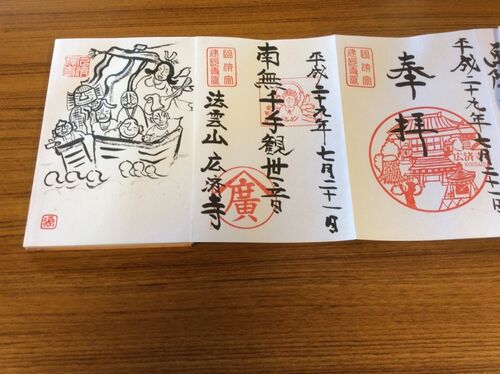 平成二十九年七月二十一日
奉拝
臨済宗
広済寺
平成二十九年七月二十一日
南無千手観世音
臨済宗
法雲山 広済寺
廣